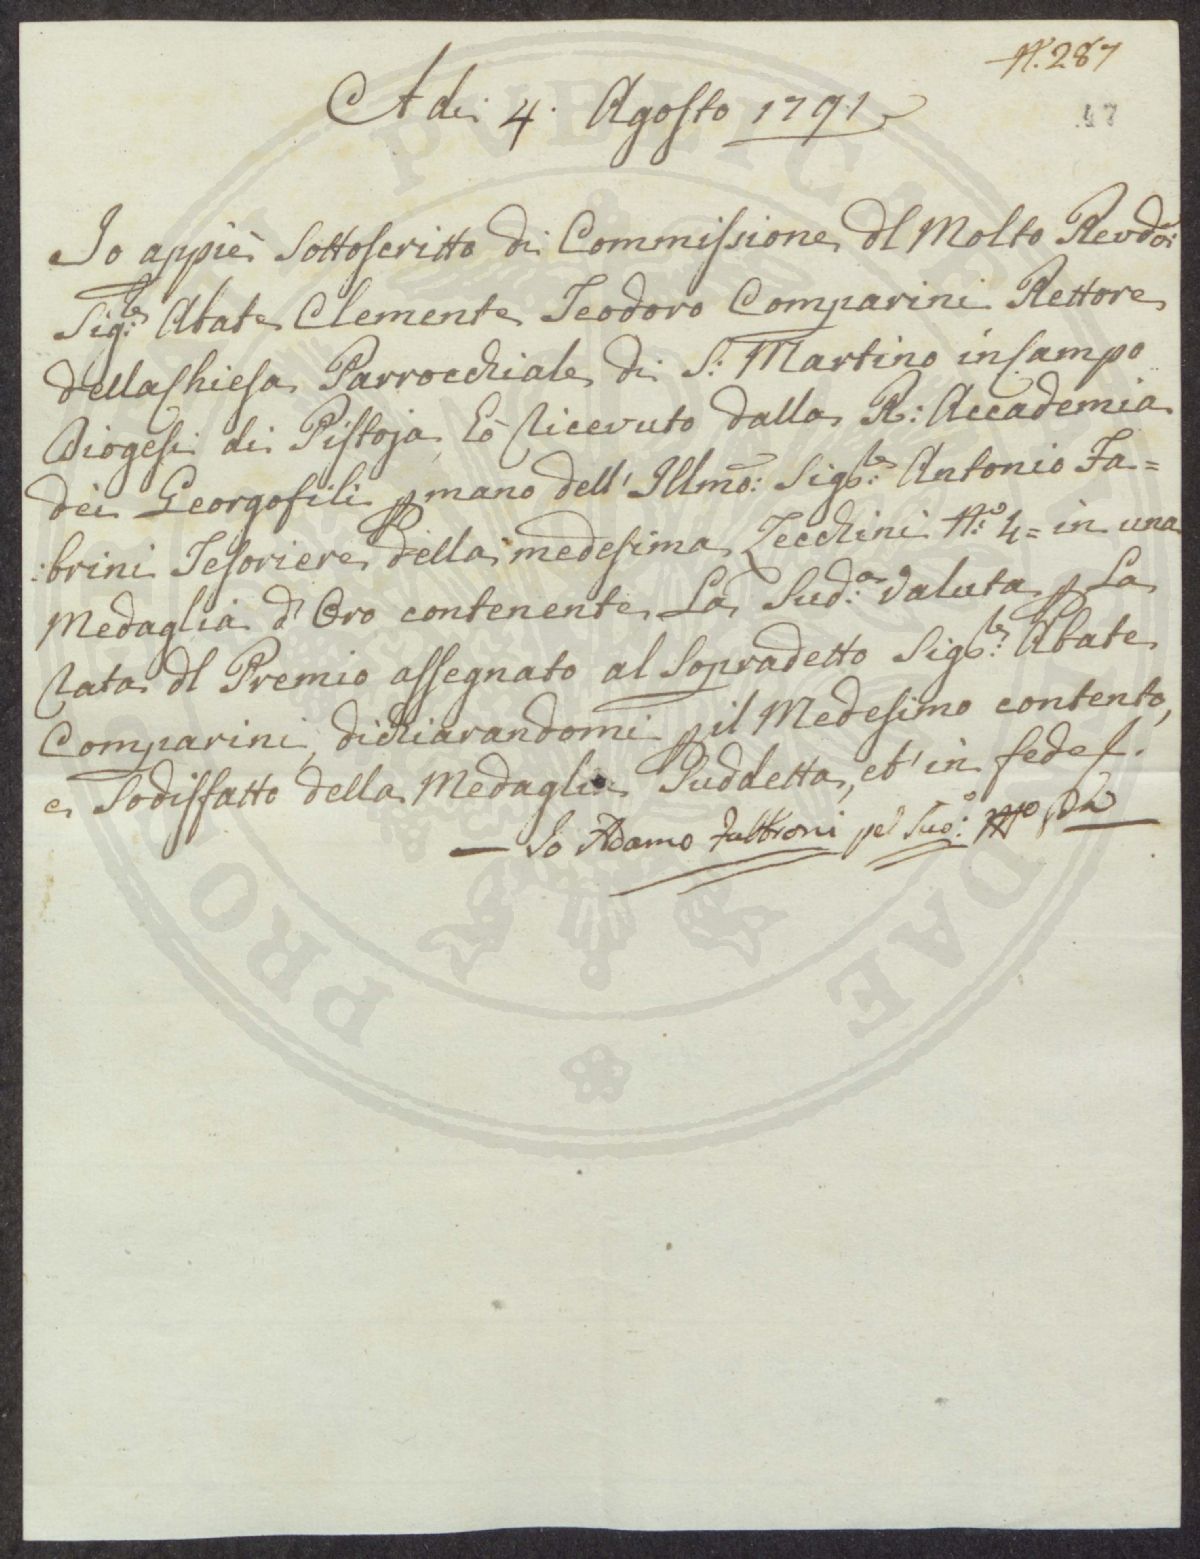 N.° 287
47
A di 4. Agosto 1791
Io appiè Sottoscritto di Commissione dl Molto Revdo:
Sig.re Abate Clemente Teodoro Comparini Rettore
della Chiesa Parrocchiale di S. Martino in Campo
Diogesi di Pistoja, ò ricevuto dalla R: Accademia
dei Georgofili p mano dell' Illmo: Sig.re Antonio Fa=
:brini Tesoriere della medesima Zecchini N.° 4= in una
Medaglia d'Oro contenente La Sud.a Valuta p La
rata dl Premio assegnato al Sopradetto Sig.re Abate
Comparini, dichiarandomi p il Medesimo contento,
e Sodisfatto della Medaglia Suddetta, et' in fede
Io Adamo Fabbroni
PUBLICAE
PROSPERITATI